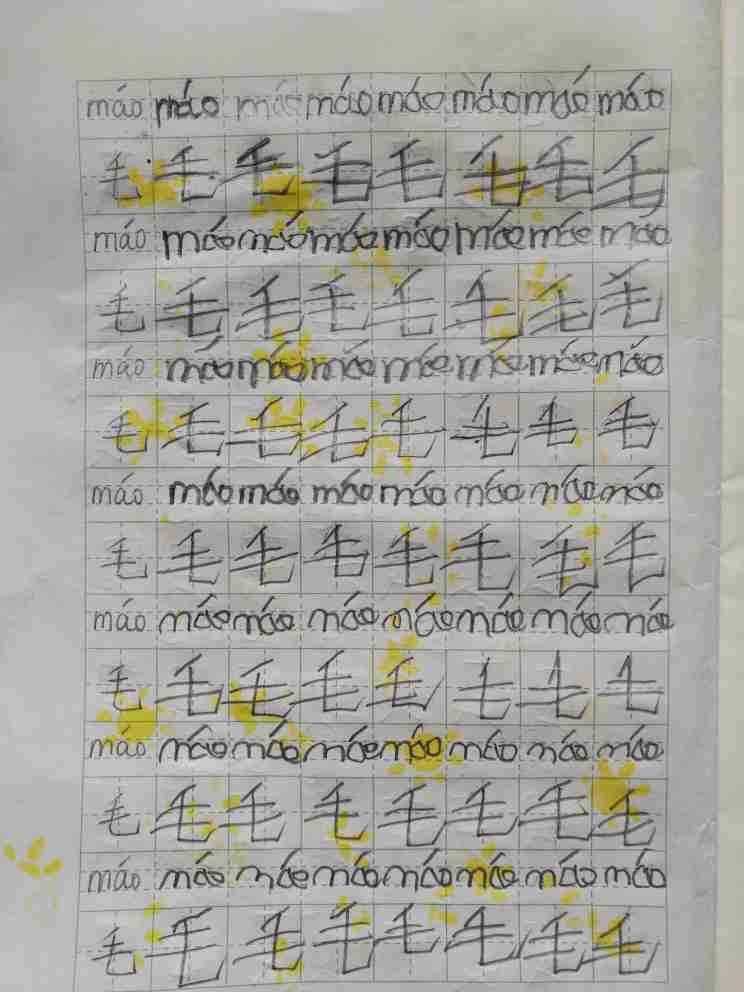 máo máo máo máo máo máo máo máo
毛 毛 毛 毛 毛 毛 毛 毛
máo máo máo máo máo máo máo máo
毛 毛 毛 毛 毛 毛 毛 毛
máo máo máo máo máo máo máo máo
毛 毛 毛 毛 毛 毛 毛 毛
máo máo máo máo máo máo máo máo
毛 毛 毛 毛 毛 毛 毛 毛
máo máo máo máo máo máo máo máo
毛 毛 毛 毛 毛 毛 毛 毛
máo máo máo máo máo máo máo máo
毛 毛 毛 毛 毛 毛 毛 毛
máo máo máo máo máo máo máo máo
毛 毛 毛 毛 毛 毛 毛 毛